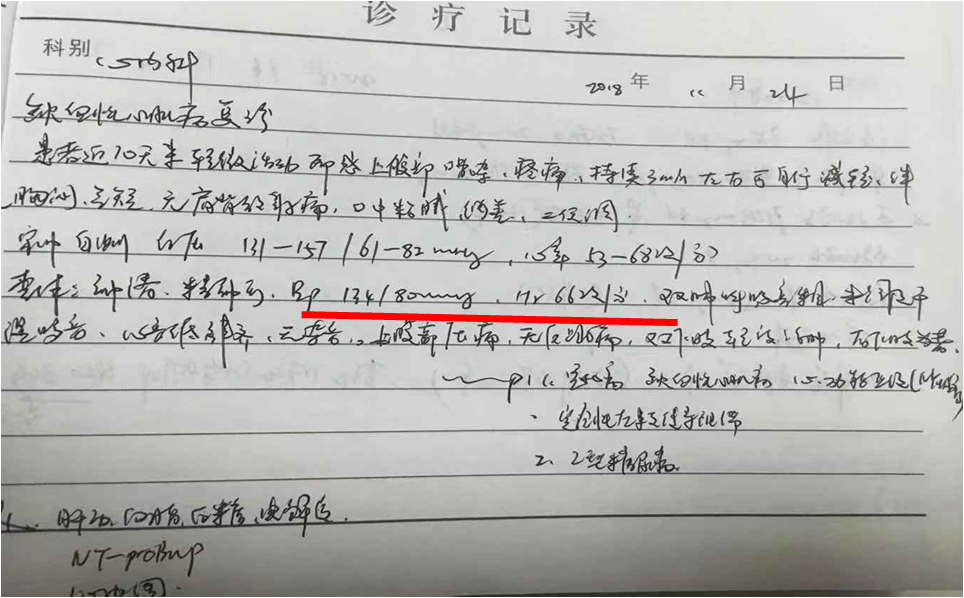 诊疗记录
科别 心内科
2018年 11月 24日
缺血性心肌病复诊
患者近10天来轻微活动即感上腹部嘈杂、疼痛、持续3min左右可自行减轻、伴
胸闷、气短、无肩背放射痛,口中粘腻,纳差、二便调.
家中自测血压 131-157/61-82mmHg,心率 53-68次/分
查体:神清、精神可、Bp 134/80mmHg、Hr 66次/分、双肺呼吸音粗、未闻及干
湿啰音、心音低钝,齐,无杂音,上腹部压痛,无反跳痛,双下肢轻度浮肿,
冠心病 缺血性心肌病 心功能
完全性左束支传导阻滞
2、2型糖尿病
肝功、血脂、血糖、电解质.
NT-proBNP